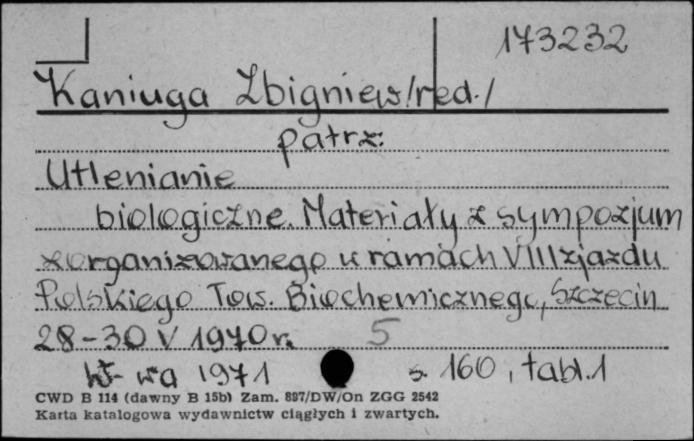 173232
Kaniuga Zbigniew/red./
patrz:
Utlenianie
biologiczne. Materiały z sympozjum
zorganizowanego w ramach VIII zjazdu
Polskiego Tow. Biochemicznego, Szczecin
28-30 V 1970 r. 5
W-wa 1971 s. 160, tabl. 1
CWD B 114 (dawny B 15b) Zam. 897/DW/On ZGG 2542
Karta katalogowa wydawnictw ciągłych i zwartych.